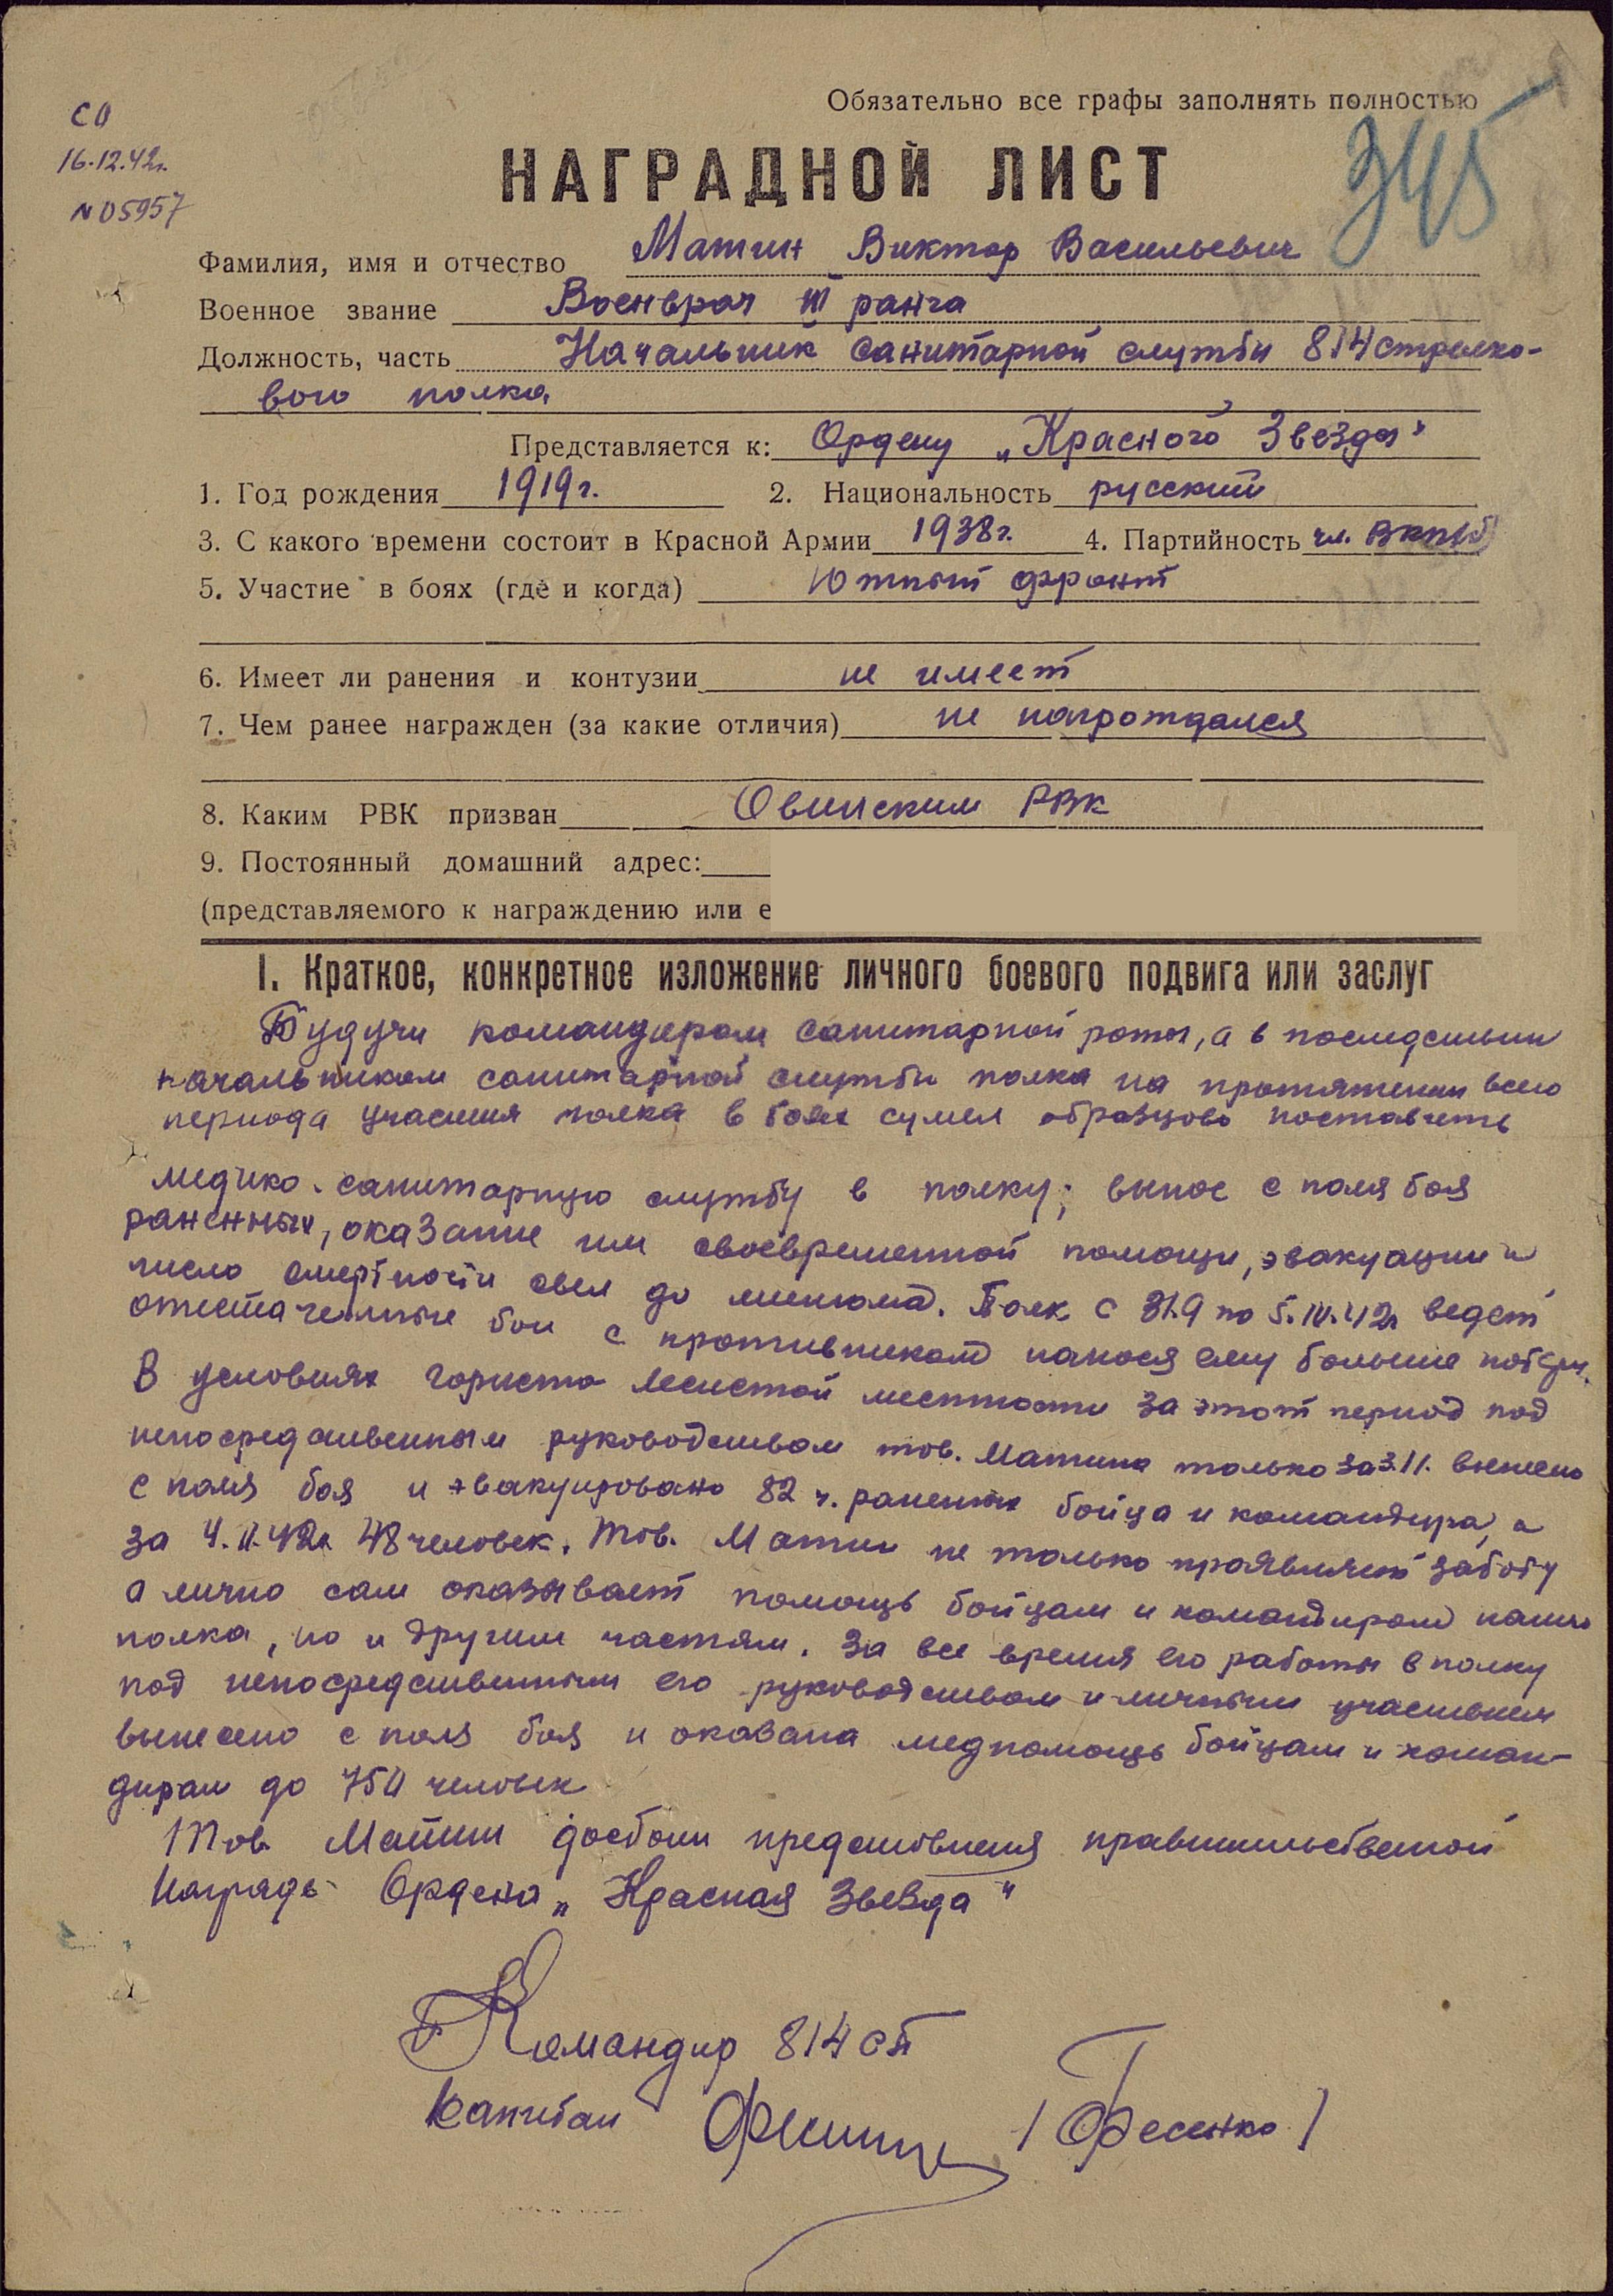 Обязательно все графы заполнять полностью
СО
16.12.42г.
№05957
345
НАГРАДНОЙ ЛИСТ
Фамилия, имя и отчество Матин Виктор Васильевич
Военное звание Военврач III ранга
Должность, часть Начальник санитарной службы 814 стрелко-
вого полка
Представляется к: Ордену „Красного Звезда"
1. Год рождения 1919г. 2. Национальность русский
3. С какого времени состоит в Красной Армии 1938г. 4. Партийность чл. ВКП(б)
5. Участие в боях (где и когда) Южный фронт
6. Имеет ли ранения и контузии не имеет
7. Чем ранее награжден (за какие отличия) не награждался
8. Каким РВК призван Овинским РВК
9. Постоянный домашний адрес:
(представляемого к награждению или е
I. Краткое, конкретное изложение личного боевого подвига или заслуг
Будучи командиром санитарной роты, а в последствии
начальником санитарной службы полка на протяжении всего
периода участия полка в боях сумел образцово поставить
медико-санитарную службу в полку; вынос с поля боя
раненных, оказание им своевременной помощи, эвакуации и
число смертности свел до минимума. Полк с 31.9 по 5.IV.42г ведет
ожесточенные бои с противником нанося ему большие потери.
В условиях гористо лесистой местности за этот период под
непосредственным руководством тов. Матина только за 3.11. вынесено
с поля боя и эвакуировано 82 ч. раненых бойца и командира, а
за 4.11.42г 48 человек. Тов. Матин не только проявляет заботу
а лично сам оказывает помощь бойцам и командирам нашего
полка, но и другим частям. За все время его работы в полку
под непосредственным его руководством и личным участием
вынесено с поля боя и оказана медпомощь бойцам и коман-
дирам до 750 человек
Тов. Матин достоин представления правительственной
награды Ордена „Красная Звезда"
Командир 814 сп
Капитан /Фесенко/